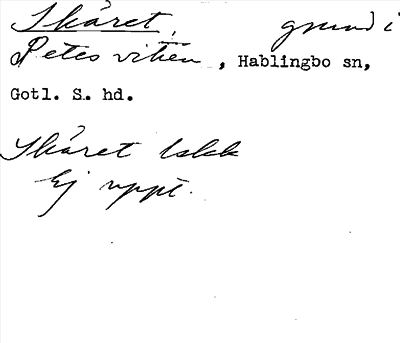 Skåret, grund i
Petesviken, Hablingbo sn,
Gotl. S. hd.
Skåret lskk
Ej uppt.